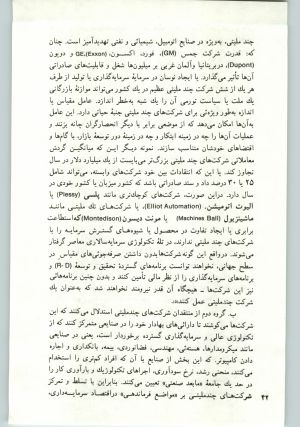 چند ملیتی، به‌ویژه در صنایع اتومبیل، شیمیائی و نفتی تهدیدآمیز است. چنان
که: قدرت شرکت جمس (GM)، فورد، اکسون، (Exxon)،GE و دوپون
(Dupont) دربریتانیا وآلمان غربی بر میلیون‌ها شغل و قابلیت‌های صادراتی
آن‌ها تأثیر می‌گذارد. با ایجاد نوسان در سرمایهٔ سرمایه‌گذاری یا تولید از طرف
هر یك از شش شرکت چند ملیتی عظیم در یك کشور می‌تواند موازنهٔ بازرگانی
یك ملت یا سیاست تورمی آن را یك شبه به‌خطر اندازد. عامل مقیاس یا
اندازه به‌طور ویژه‌ئی برای شرکت‌های چند ملیتی جنبهٔ حیاتی دارد. این عامل
به‌آن‌ها امکان می‌دهد که از موضعی برابر با دیگر انحصارگران چانه بزنند و
عملیات آن‌ها را چه در زمینهٔ ابتکار و چه در زمینهٔ دور توسعهٔ بازار، با گام‌ها و
اقتضاهای خودشان متناسب سازند. نمونه دیگر این که میانگین گردش
معاملاتی شرکت‌های چند ملیتی بزرگ‌تر می‌بایست از یك میلیارد دلار در سال
تجاوز کند. با این که انتقادات بین خود شرکت‌های وابسته، می‌تواند شامل
۲۵ تا ۳۰ درصد داد و ستد صادراتی باشد که کشور میزبان یا کشور خودی در
سال دارد. دراین صورت، شرکت‌های کوچك‌تری مانند پلسی (Plessy) یا
الیوت اتومیشن، (Elliot Automation)، یا شرکت‌های تك ملیتی مانند
ماشینزبول (Machines Ball) یا مونت دیسون (Montedison) که استطاعت
برابری یا ایجاد تفاوت در محصول یا شیوه‌های گسترش سرمایه را با
شرکت‌های چند ملیتی ندارند، در تلهٔ تکنولوژی سرمایه‌سالاری معاصر گرفتار
می‌شوند. درواقع این گونه شرکت‌ها بدون داشتن صرفه‌جوئی‌های مقیاس در
سطح جهانی، نخواهند توانست برنامه‌های گستردهٔ تحقیق و توسعهٔ (R- D) و
برنامه‌های سرمایه‌گذاری را از نظر مالی تأمین کنند و بدون چنین برنامه‌هائی
نیز این شرکت‌ها ــ هیچگاه آن قدر نیرومند نخواهند شد که به‌عنوان یك
شرکت چندملیتی عمل کنند».
ب. گروه دوم از منتقدان شرکت‌های چندملیتی استدلال می‌کنند که این
شرکت‌ها می‌کوشند تا دارائی‌های بهادار خود را در صنایعی متمرکز کنند که از
تکنولوژی عالی و سرمایه‌گذاری گسترده برخوردار است، یعنی در صنایعی
مانند میکرومدارها، هسته‌ئی، مهندسی، فضانوردی، بیمه، بانکداری و اجاره
دادن کامپیوتر، که این بخش از صنایع با آن که افراد کم‌تری را استخدام
می‌کنند، منحنی رشد، نرخ سودآوری، اجراهای تکنولوژیك و بازآوری کار را
در حد یك جامعهٔ «مابعد صنعتی» تعیین می‌کنند. بنابراین با تسلط و تمرکز
شرکت‌های چندملیتی بر «مواضع فرماندهی» دراقتصاد سرمایه‌داری،
۴۲